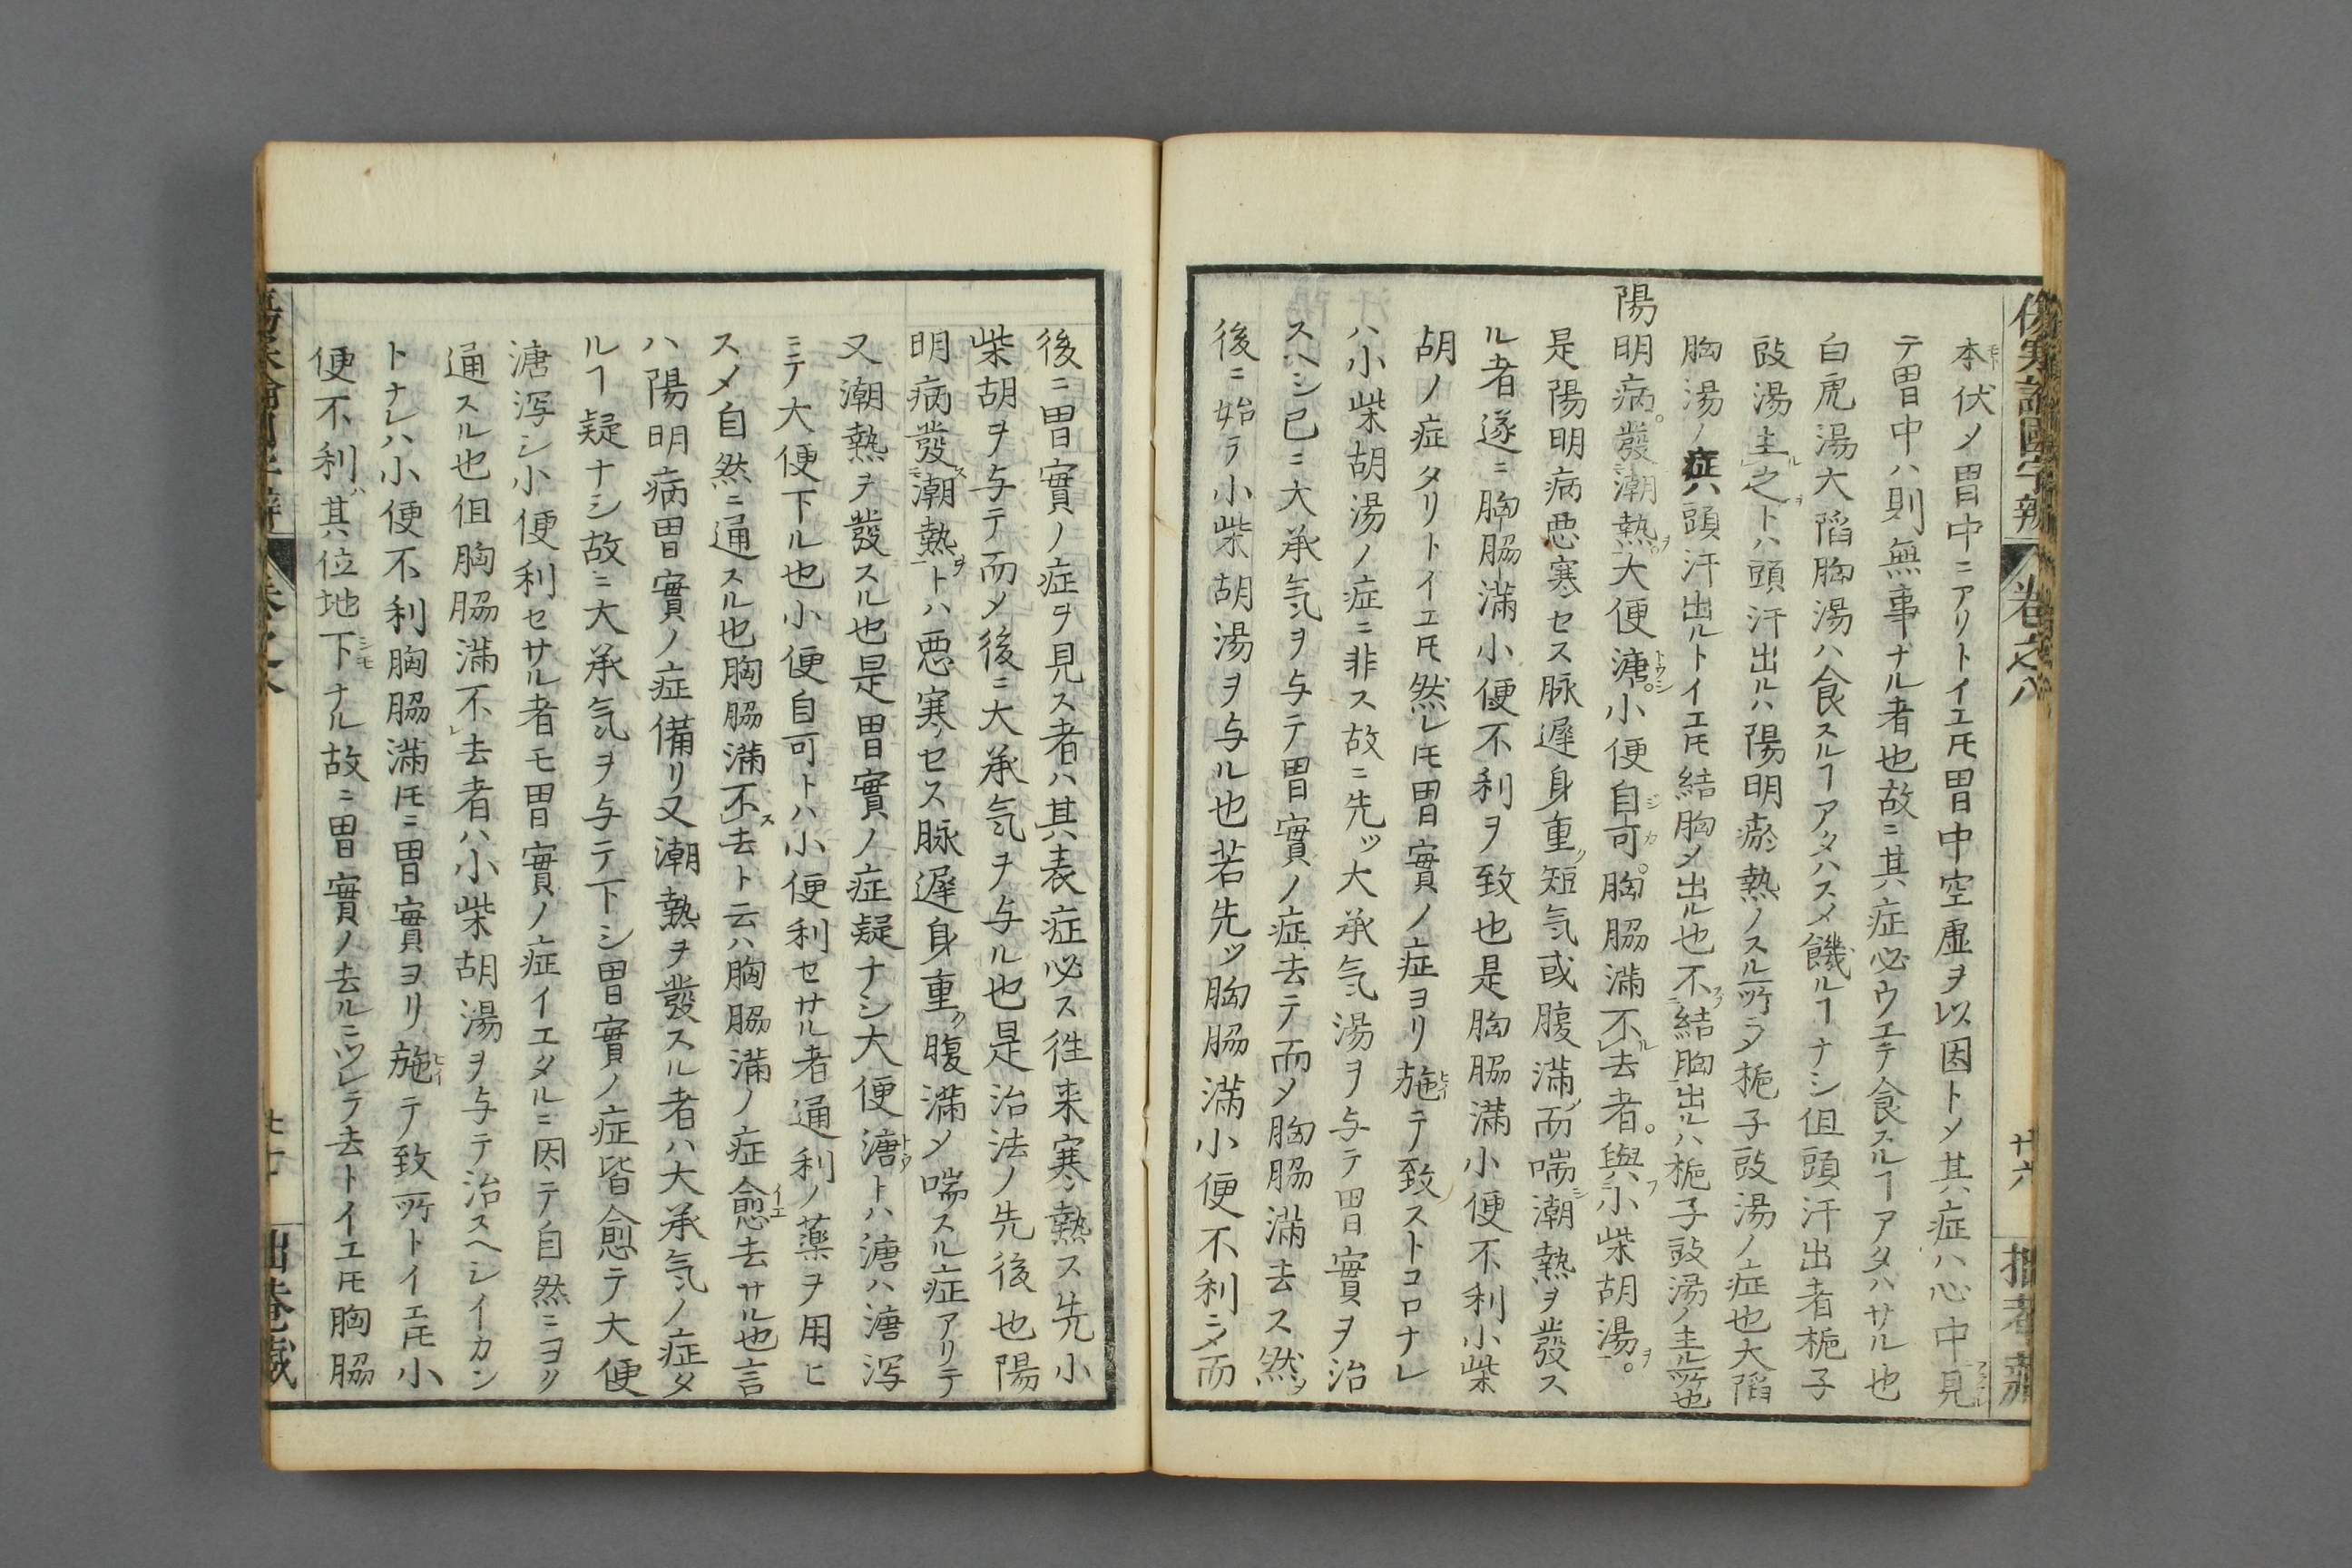 傷寒論國字辨 卷之八 廿六
本伏メ胃中ニアリトイエ𪜈胃中空虛ヲ以因トメ其症ハ心中見
テ胃中ハ則無事ナル者也故ニ其症必ウエテ食スルヿアタハサル也
白虎湯大陷胸湯ハ食スルヿアタハスメ饑ルヿナシ但頭汗出者梔子
豉湯主之トハ頭汗出ルハ陽明瘀熱ノスル所ラメ梔子豉湯ノ症也大陷
胸湯ノ症ハ頭汗出ルトイエ𪜈結胸メ出ル也不結胸出ルハ梔子豉湯ノ主ル所也
陽明病。發潮熱。大便溏。小便自可。胸脇滿不去者。與小柴胡湯。
是陽明病惡寒セス脉遲身重ク短気或腹滿而喘潮熱ヲ發ス
ル者遂ニ胸脇滿小便不利ヲ致也是胸脇滿小便不利小柴
胡ノ症タリトイエ𪜈然レ𪜈胃實ノ症ヨリ施テ致ストコロナレ
ハ小柴胡湯ノ症ニ非ス故ニ先ッ大承気湯ヲ与テ胃實ヲ治
スヘシ已ニ大承気ヲ与テ胃實ノ症去テ而メ胸脇滿去ス然メ
後ニ始テ小柴胡湯ヲ与ル也若先ッ胸脇滿小便不利ニメ而
後ニ胃實ノ症ヲ見ス者ハ其表症必ス徃来寒熱ス先小
柴胡ヲ与テ而メ後ニ大承気ヲ与ル也是治法ノ先後也陽
明病發潮熱トハ惡寒セス脉遲身重ク腹滿メ喘スル症アリテ
又潮熱ヲ發スル也是胃實ノ症疑ナシ大便溏トハ溏ハ溏泻
ニテ大便下ル也小便自可トハ小便利セサル者通利ノ薬ヲ用ヒ
スメ自然ニ通スル也胸脇滿不去ト云ハ胸脇滿ノ症愈去サル也言
ハ陽明病胃實ノ症備リ又潮熱ヲ發スル者ハ大承気ノ症タ
ルヿ疑ナシ故ニ大承気ヲ与テ下シ胃實ノ症皆愈テ大便
溏泻シ小便利セサル者モ胃實ノ症イエタルニ因テ自然ニヨク
通スル也但胸脇滿不去者ハ小柴胡湯ヲ与テ治スヘシイカン
トナレハ小便不利胸脇滿𪜈ニ胃實ヨリ施テ致所トイエ𪜈小
便不利ハ其位地下ナル故ニ胃實ノ去ルニツレテ去トイエ𪜈胸脇